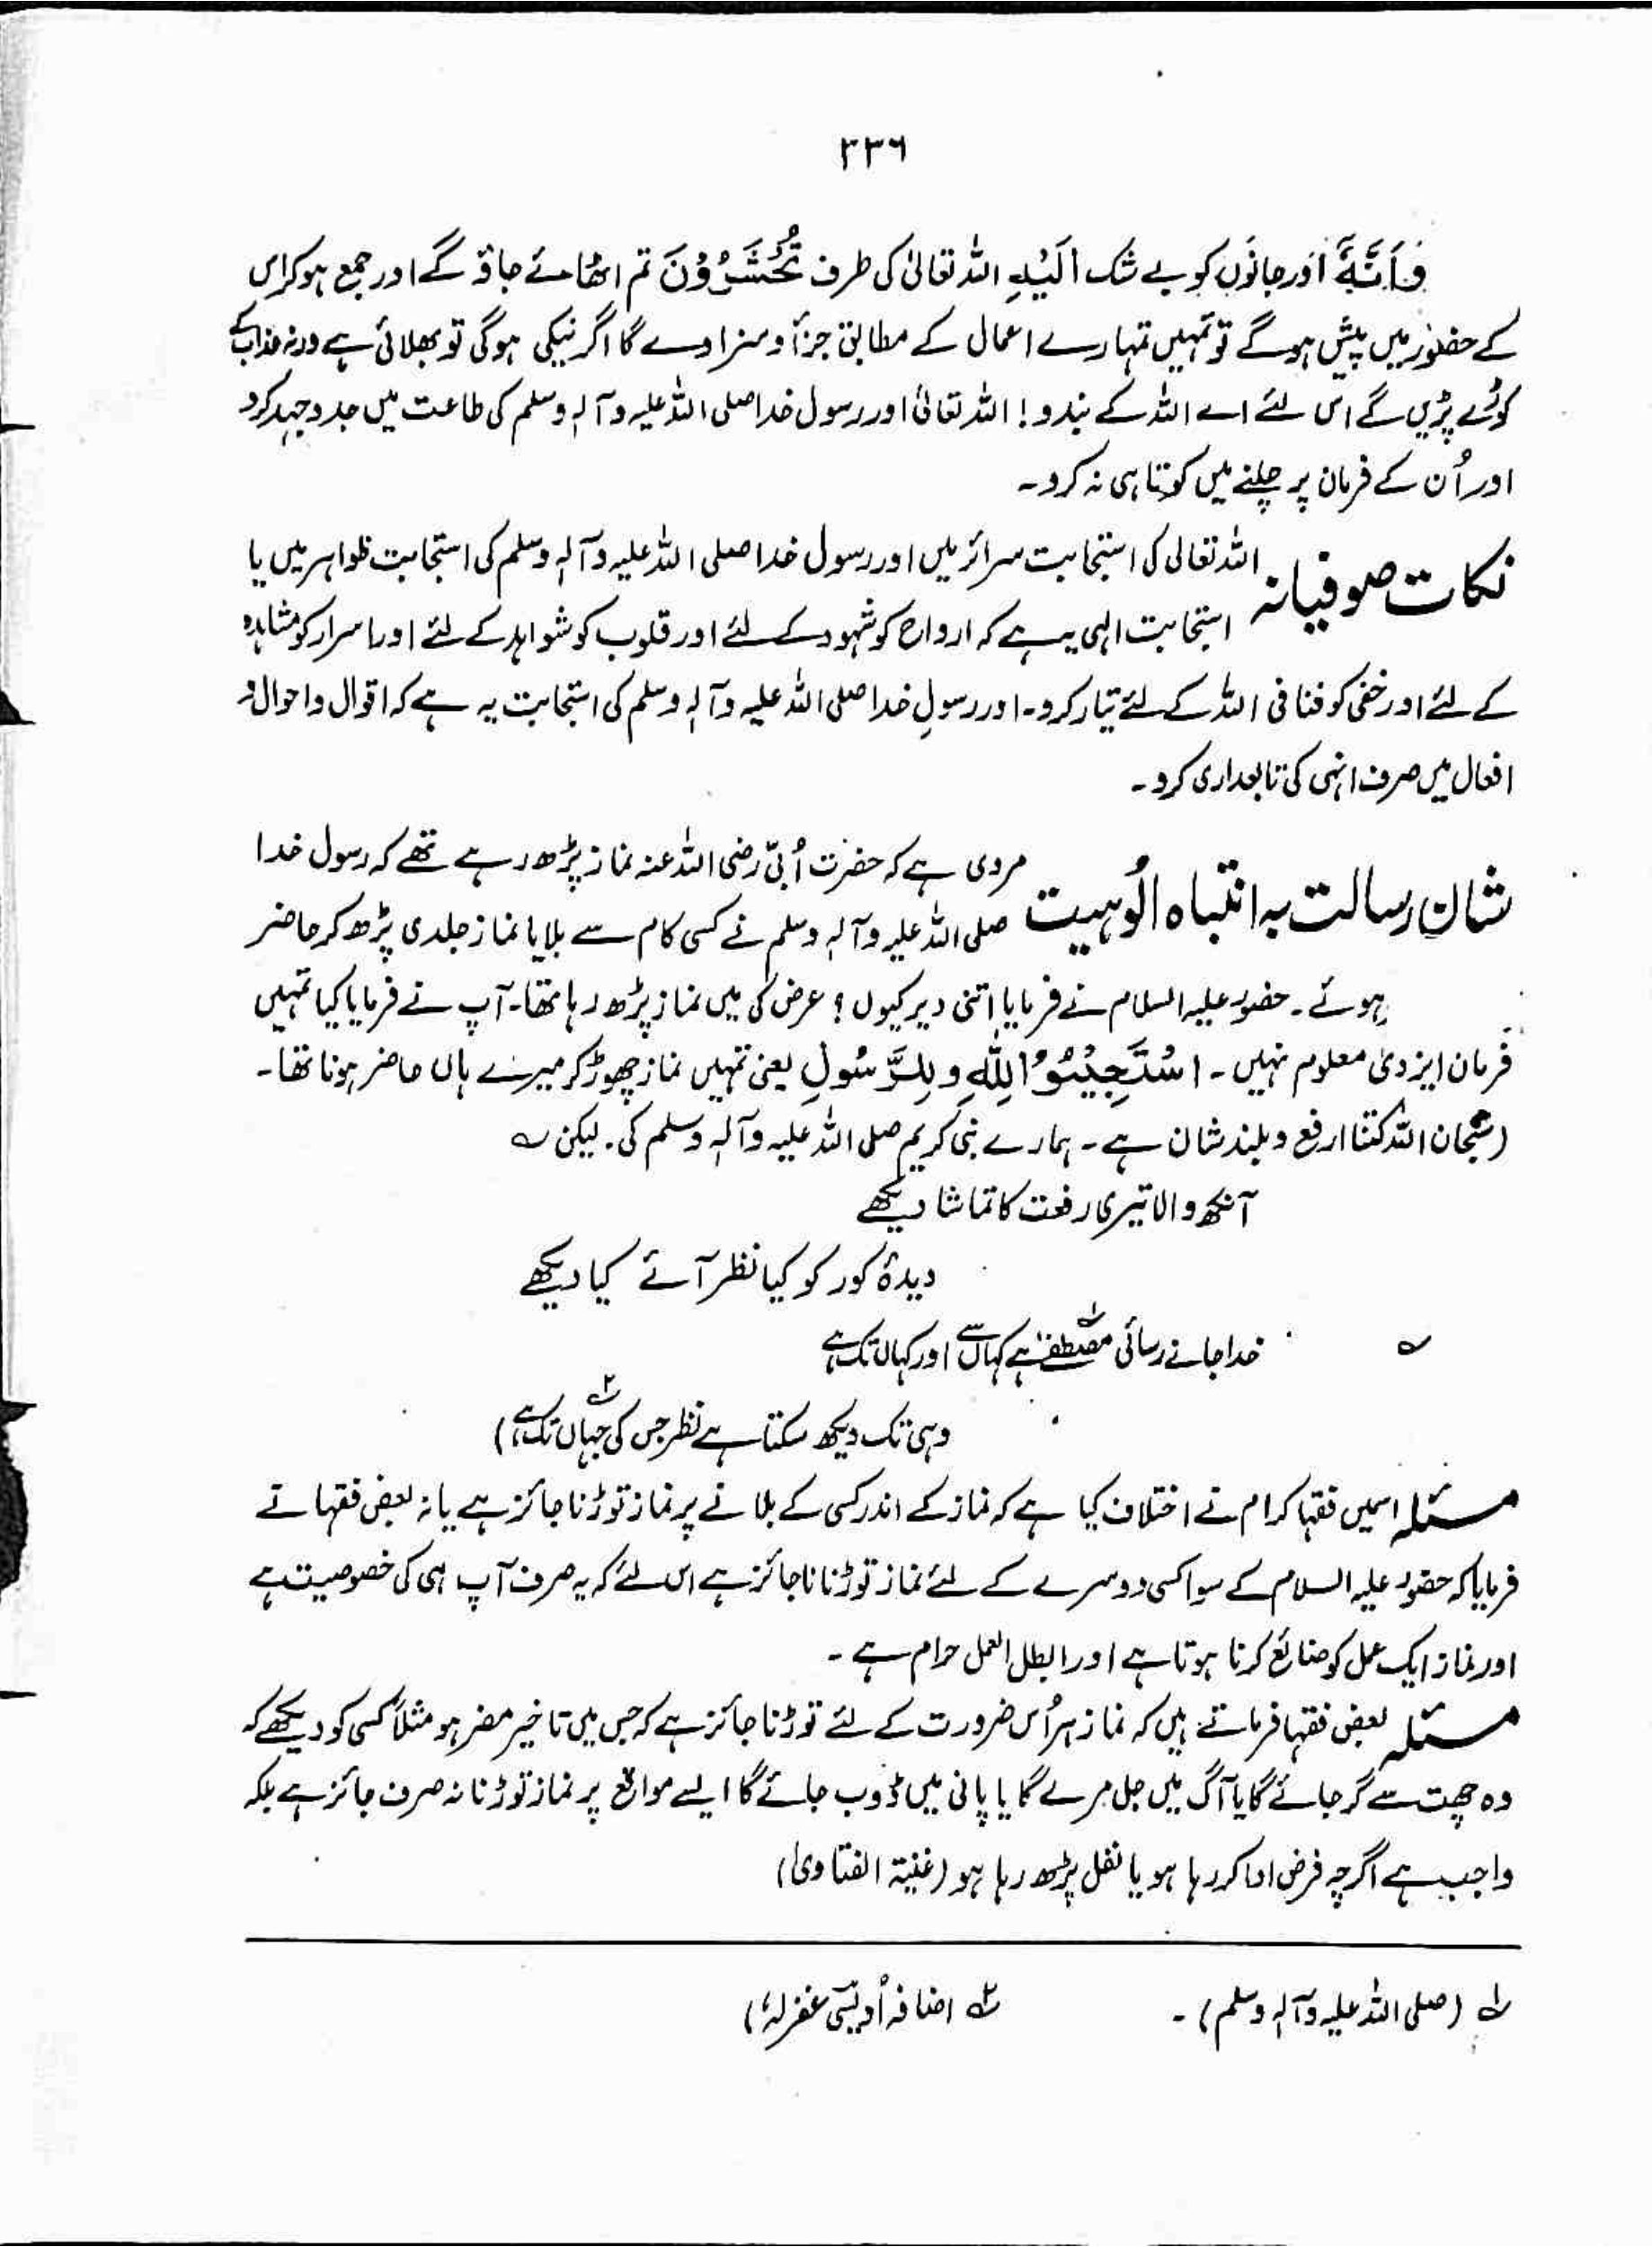 ۳۳۶
وَاَنَّهٗٓ اور جانوں کو بے شک اِلَیْهِ اللہ تعالیٰ کی طرف تُحْشَرُوْنَ تم اٹھائے جاؤ گے اور جمع ہو کر اس
کے حضور میں پیش ہو گے تو تمہیں تمہارے اعمال کے مطابق جزأ و سزا دے گا اگر نیکی ہوگی تو بھلائی ہے ورنہ عذاب کے
کوڑے پڑیں گے اس لئے اے اللہ کے بندو! اللہ تعالیٰ اور رسول خدا صلی اللہ علیہ وآلہٖ وسلم کی طاعت میں جدوجہد کرو
اور اُن کے فرمان پر چلنے میں کوتاہی نہ کرو۔
نکات صوفیانہ اللہ تعالی کی استجابت سرائر میں اور رسول خدا صلی اللہ علیہ وآلہٖ وسلم کی استجابت ظواہر میں یا
استجابت الہی یہ ہے کہ ارواح کو شہود کے لئے اور قلوب کو شواہد کے لئے اور اسرار کو مشاہدہ
کے لئے اور خفی کو فنا فی اللہ کے لئے تیار کرو۔ اور رسولِ خدا صلی اللہ علیہ وآلہٖ وسلم کی استجابت یہ ہے کہ اقوال و احوال و
افعال میں صرف انہی کی تابعداری کرو۔
شان رسالت بہ انتباہ الُوہیت مروی ہے کہ حضرت اُبیّ رضی اللہ عنہ نماز پڑھ رہے تھے کہ رسول خدا
صلی اللہ علیہ وآلہٖ وسلم نے کسی کام سے بلایا نماز جلدی پڑھ کر حاضر
ہوئے۔ حضور علیہ السلام نے فرمایا اتنی دیر کیوں؟ عرض کی میں نماز پڑھ رہا تھا۔ آپ نے فرمایا کیا تمہیں
فرمان ایزدی معلوم نہیں۔ اسْتَجِیْبُوْا لِلّٰهِ وَلِلرَّسُولِ یعنی تمہیں نماز چھوڑ کر میرے ہاں حاضر ہونا تھا۔
(سُبحان اللہ کتنا ارفع و بلند شان ہے۔ ہمارے نبی کریم صلی اللہ علیہ وآلہٖ وسلم کی۔ لیکن ؎
آنکھ والا تیری رفعت کا تماشا دیکھے
دیدۂ کور کو کیا نظر آئے کیا دیکھے
؎ خدا جانے رسائی مصطفےٰ ؁۱ ہے کہاں سے اور کہاں تک ہے
وہی تک دیکھ سکتا ہے نظر جس کی جہاں تک ہے ؁۲)
مسئلہ اسمیں فقہا کرام نے اختلاف کیا ہے کہ نماز کے اندر کسی کے بلانے پر نماز توڑنا جائز ہے یا نہ بعض فقہا نے
فرمایا کہ حضور علیہ السلام کے سوا کسی دوسرے کے لئے نماز توڑنا ناجائز ہے اس لئے کہ یہ صرف آپ ہی کی خصوصیت ہے
اور نماز ایک عمل کو ضائع کرنا ہوتا ہے اور ابطل العمل حرام ہے۔
مسئلہ بعض فقہا فرماتے ہیں کہ نماز ہر اُس ضرورت کے لئے توڑنا جائز ہے کہ جس میں تاخیر مضر ہو مثلاً کسی کو دیکھے کہ
وہ چھت سے گر جائے گا یا آگ میں جل مرے گا یا پانی میں ڈوب جائے گا ایسے مواقع پر نماز توڑنا نہ صرف جائز ہے بلکہ
واجب ہے اگرچہ فرض ادا کر رہا ہو یا نفل پڑھ رہا ہو (غنیۃ الفتاویٰ)
؁۱ (صلی اللہ علیہ وآلہٖ وسلم)۔ ؁۲ اضافہ اُویسی غفرلہٗ)